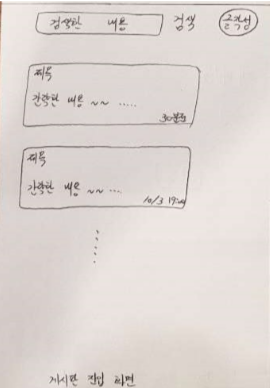 검색한 내용 검색 글작성
제목
간략한 내용 ~~ .....
30분전
제목
간략한 내용 ~~ ...
10/3 19:04
게시판 진입 화면